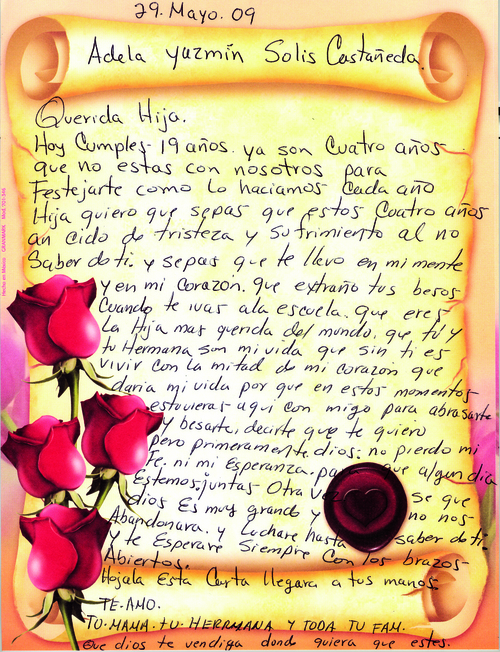 29. Mayo. 09
Adela Yazmín Solis Castañeda.
Querida Hija.
Hoy Cumples 19 años. ya son Cuatro años
que no estas con nosotros para
Festejarte como Lo haciamos Cada año
Hija quiero que sepas que estos Cuatro años
an cido de tristeza y sufrimiento al no
Saber de ti. y sepas que te llevo en mi mente
y en mi Corazón. que extraño tus besos
Cuando te ivas ala escuela. que eres
La Hija mas querida del mundo. que tú y
tu Hermana son mi vida que sin ti es
vivir con la mitad de mi corazón que
daria mi vida por que en estos momentos
estuvieras aqui con migo para abrasarte
y besarte. decirte que te quiero
pero primeramente dios. no pierdo mi
Fe. ni mi Esperanza. para que algun dia
Estemos juntas Otra vez se que
dios Es muy grande y no nos
Abandonara. y luchare hasta saber de ti.
y te Esperare Siempre Con los brazos
Abiertos.
Hojala Esta Carta llegara a tus manos
TE-AMO.
TU-MAMA. TU-HERRMANA y TODA TU FAM.
Que dios te vendiga donde quiera que estes.
Hecho en México GRANMARK Mod. TO1-346